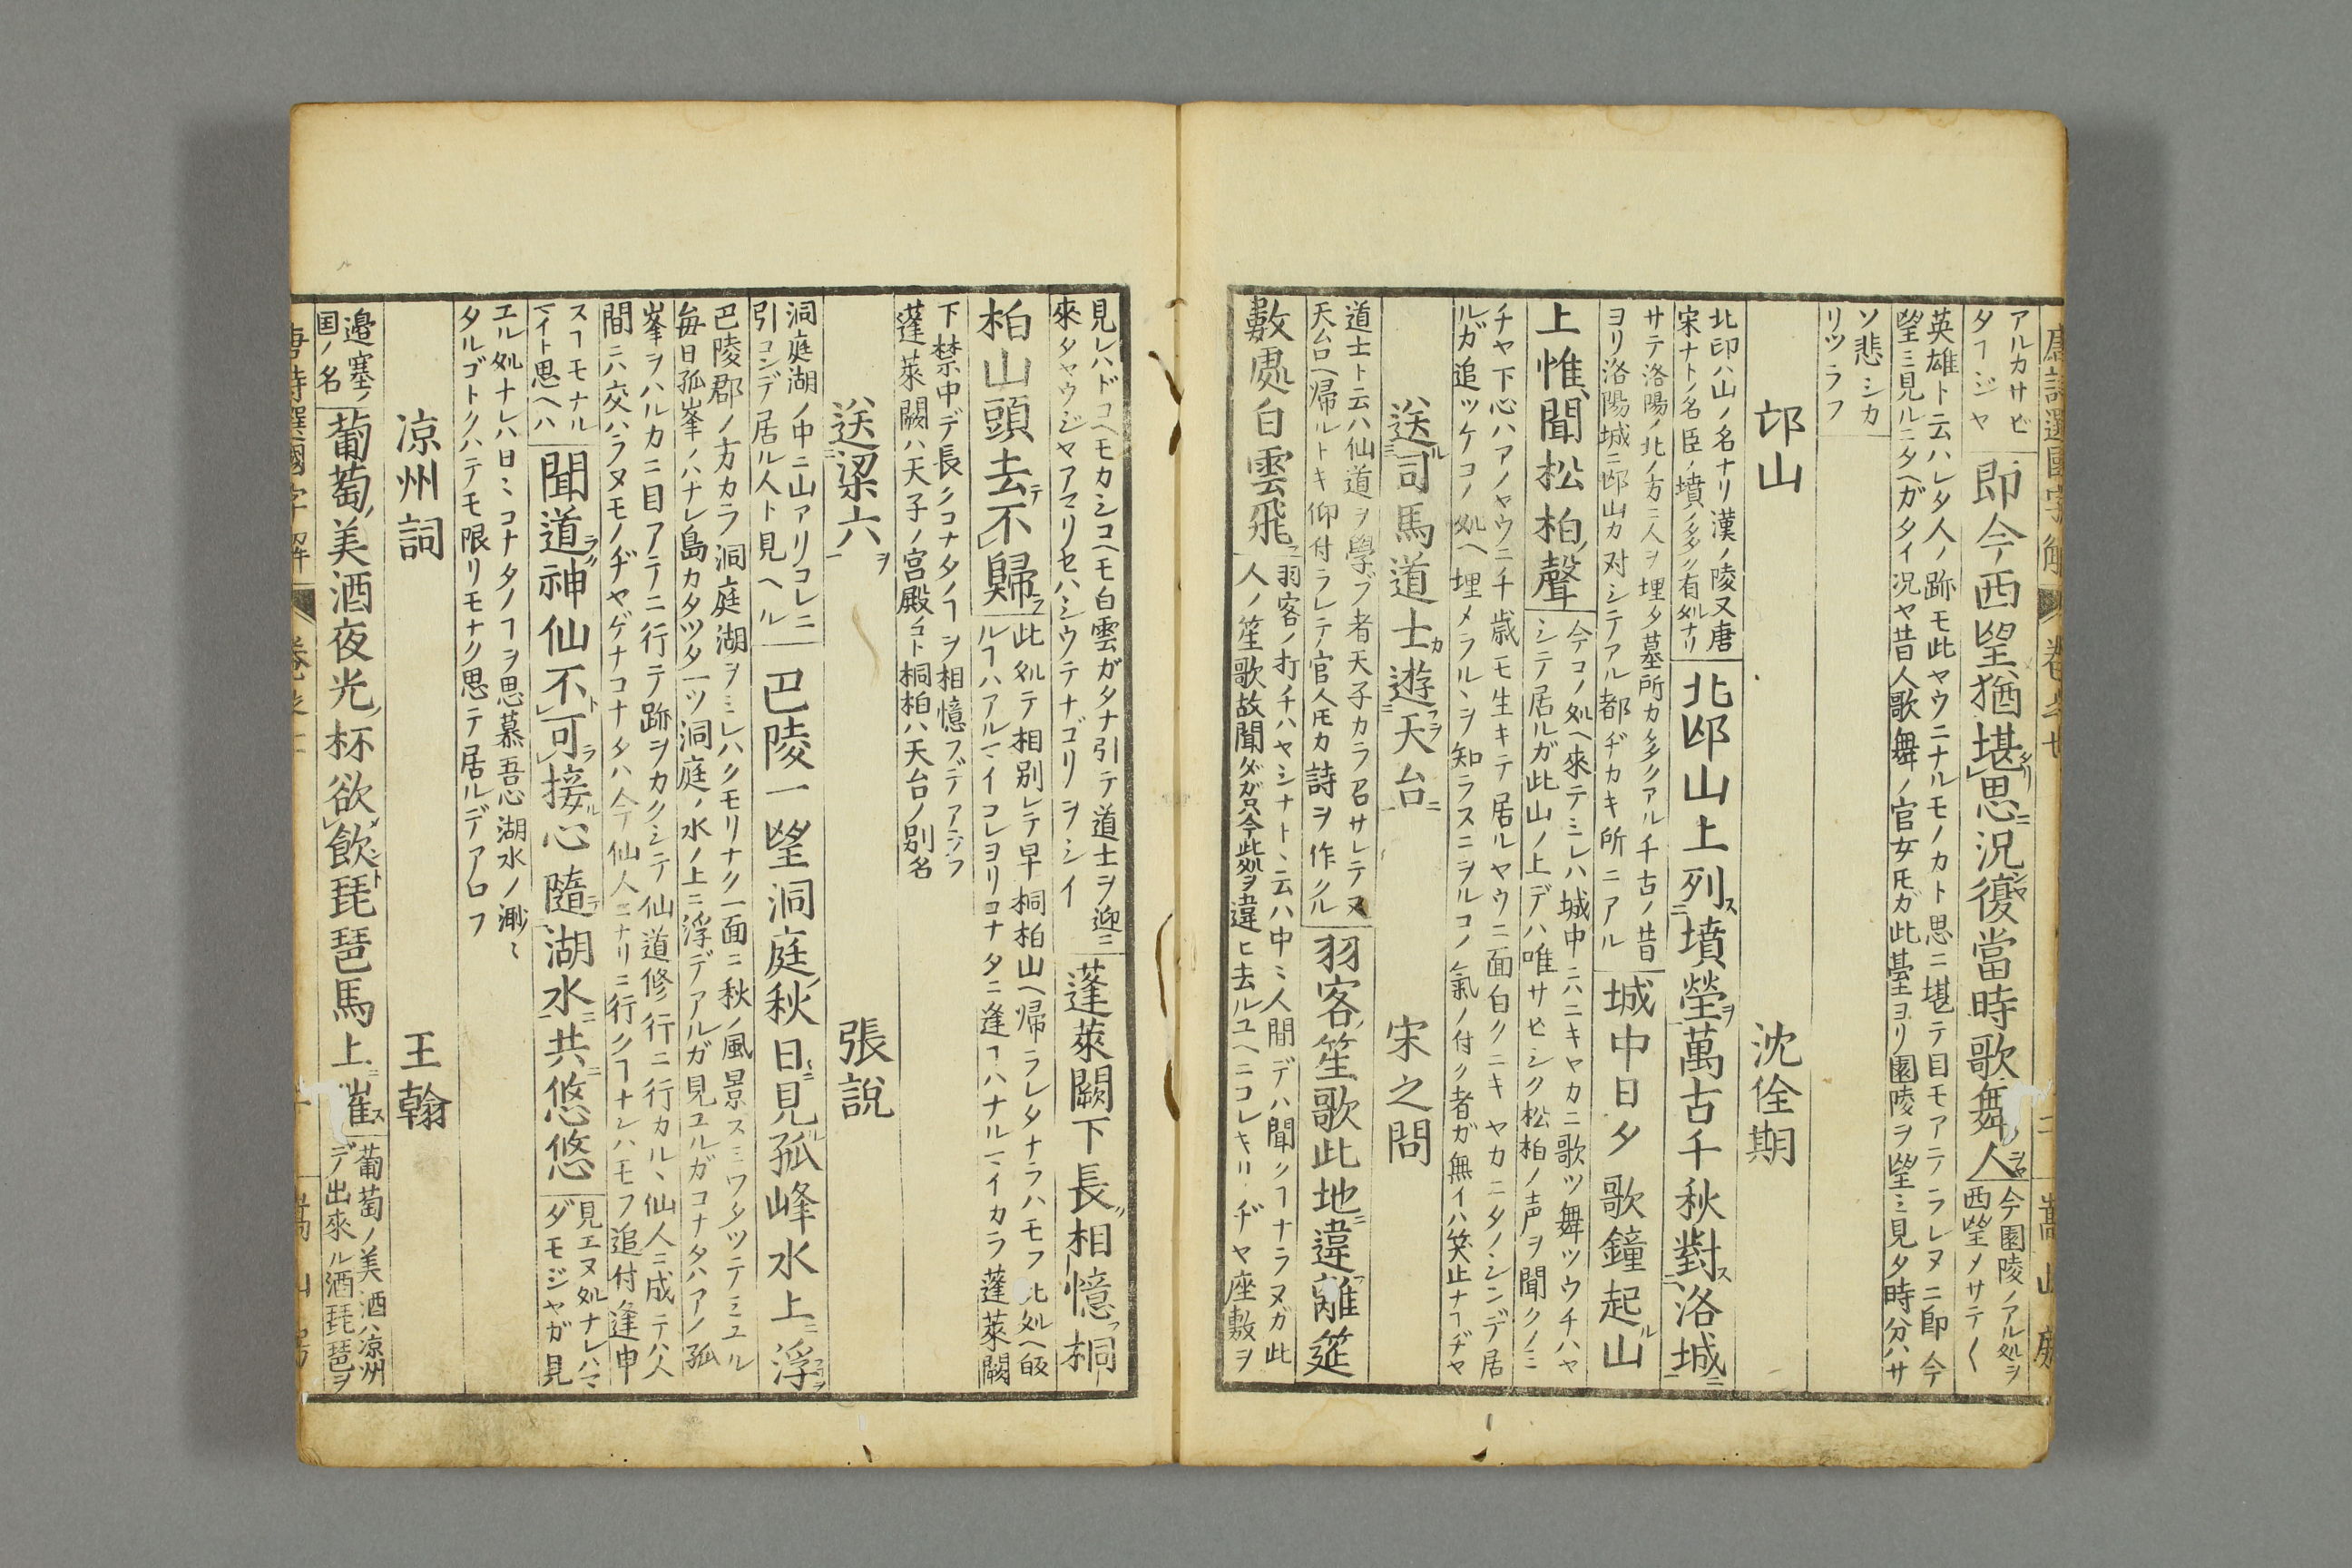 唐詩選國字解 卷之七 嵩山房
アルカサビ
タヿジヤ
即今西望猶堪思況復當時歌舞人
今園陵ノアル処ヲ
西望メサテ〱
英雄ト云ハレタ人ノ跡モ此ヤウニナルモノカト思ニ堪テ目モアテラレヌニ即今
望ミ見ルニタヘガタイ況ヤ昔人歌舞ノ官女𪜈ガ此臺ヨリ園陵ヲ望ミ見タ時分ハサ
ソ悲シカ
リツラフ
邙山 沈佺期
北邙ハ山ノ名ナリ漢ノ陵又唐
宋ナトノ名臣ノ墳ノ多ク有処ナリ
北邙山上列墳塋萬古千秋對洛城
サテ洛陽ノ北ノ方ニ人ヲ埋タ墓所カ多クアル千古ノ昔
ヨリ洛陽城ニ邙山カ対シテアル都ヂカキ所ニアル
城中日夕歌鐘起山
上惟聞松柏聲
今コノ処ヘ來テミレハ城中ニハニキヤカニ歌ツ舞ツウチハヤ
シテ居ルガ此山ノ上デハ唯サビシク松柏ノ声ヲ聞クノミ
チヤ下心ハアノヤウニ千歳モ生キテ居ルヤウニ面白クニキヤカニタノシンデ居
ルガ追ツケコノ処ヘ埋メラルヽヲ知ラスニヲルコノ氣ノ付ク者ガ無イハ笑止ナヿヂヤ
送司馬道士遊天台 宋之問
道士ト云ハ仙道ヲ學ブ者天子カラ召サレテヌ
天台ヘ帰ルトキ仰付ラレテ官人𪜈カ詩ヲ作クル
羽客笙歌此地違離筵
數處白雲飛
羽客ノ打チハヤシナトヽ云ハ中ミ人間デハ聞クヿナラヌガ此
人ノ笙歌故聞タガ只今此処ヲ違ヒ去ルユヘニコレキリヂヤ座敷ヲ
見レハドコヘモカシコヘモ白雲ガタナ引テ道士ヲ迎ニ
來タヤウジヤアマリセハシウテナゴリヲシイ
蓬萊闕下長相憶桐
柏山頭去不歸
此処テ相別レテ早桐柏山ヘ帰ラレタナラハモフ此処ヘ皈
ルヿハアルマイコレヨリコナタニ逢フヿハナルマイカラ蓬萊闕
下禁中デ長クコナタノヿヲ相憶フデアラフ
蓬萊闕ハ天子ノ宮殿ノコト桐柏ハ天台ノ別名
送梁六 張說
洞庭湖ノ中ニ山アリコレニ
引コンデ居ル人ト見ヘル
巴陵一望洞庭秋日見孤峰水上浮
巴陵郡ノ方カラ洞庭湖ヲミレハクモリナク一面ニ秋ノ風景スミワタツテミユル
毎日孤峯ノハナレ島カタツタ一ツ洞庭ノ水ノ上ニ浮デアルガ見ユルガコナタハアノ孤
峯ヲハルカニ目アテニ行テ跡ヲカクシテ仙道修行ニ行カルヽ仙人ニ成テハ人
間ニハ交ハラヌモノヂヤゲナコナタハ今仙人ニナリニ行クヿナレハモフ追付逢申
スヿモナル
マイト思ヘハ
聞道神仙不可接心隨湖水共悠悠
見エヌ処ナレハマ
ダモジヤガ見
エル処ナレハ日ミコナタノヿヲ思慕吾心湖水ノ渺〻
タルゴトクハテモ限リモナク思テ居ルデアロフ
凉州詞 王翰
邉塞ノ
国ノ名
葡萄美酒夜光杯欲飲琵琶馬上催
葡萄ノ美酒ハ凉州
デ出來ル酒琵琶ヲ
唐詩選國字解 卷之七